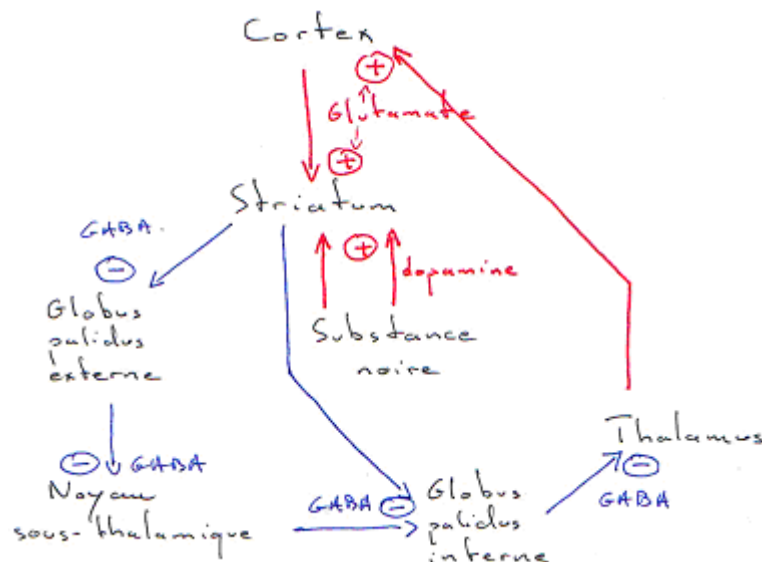 Cortex
+
Glutamate
+
Striatum
GABA.
-
+
dopamine
Globus
palidus
externe
Substance
noire
Thalamus
-
GABA
- GABA
Noyau
sous-thalamique
GABA -
Globus
palidus
interne